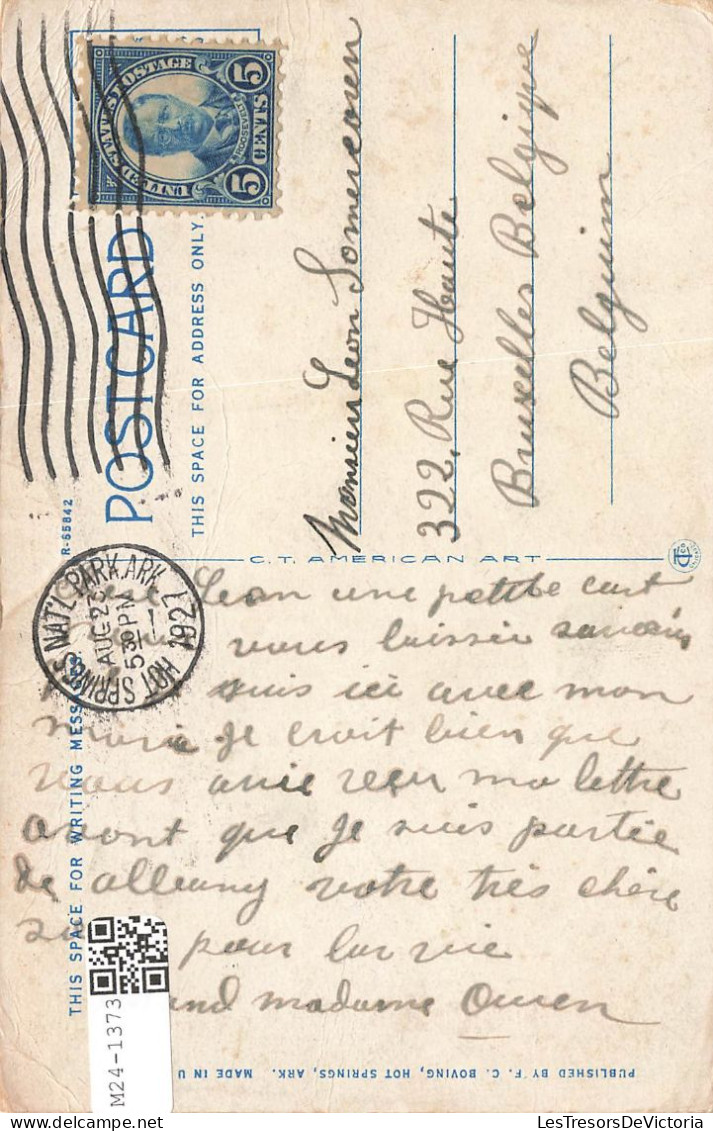 UNITED STATES POSTAGE
ROOSEVELT
5 CENTS 5
POSTCARD
THIS SPACE FOR ADDRESS ONLY
R-65842
Monsieur Leon Somercouen
322, Rue Haute
Bruxelles Belgique
Belguim
C.T. AMERICAN ART
HOT SPRINGS NAT'L PARK, ARK.
AUG 25
5 30 PM
THIS SPACE FOR WRITING MESSAGES
Leon une petite cart
vous laissée savoir
suis ici avec mon
marie je croit bien que
vous avie reçu ma lettre
avont que je suis partie
de alleung votre très chère
pour la vie
and madame Owen
PUBLISHED BY F. C. BOVING, HOT SPRINGS, ARK. MADE IN U
M24-1373
LesTresorsDeVictoria